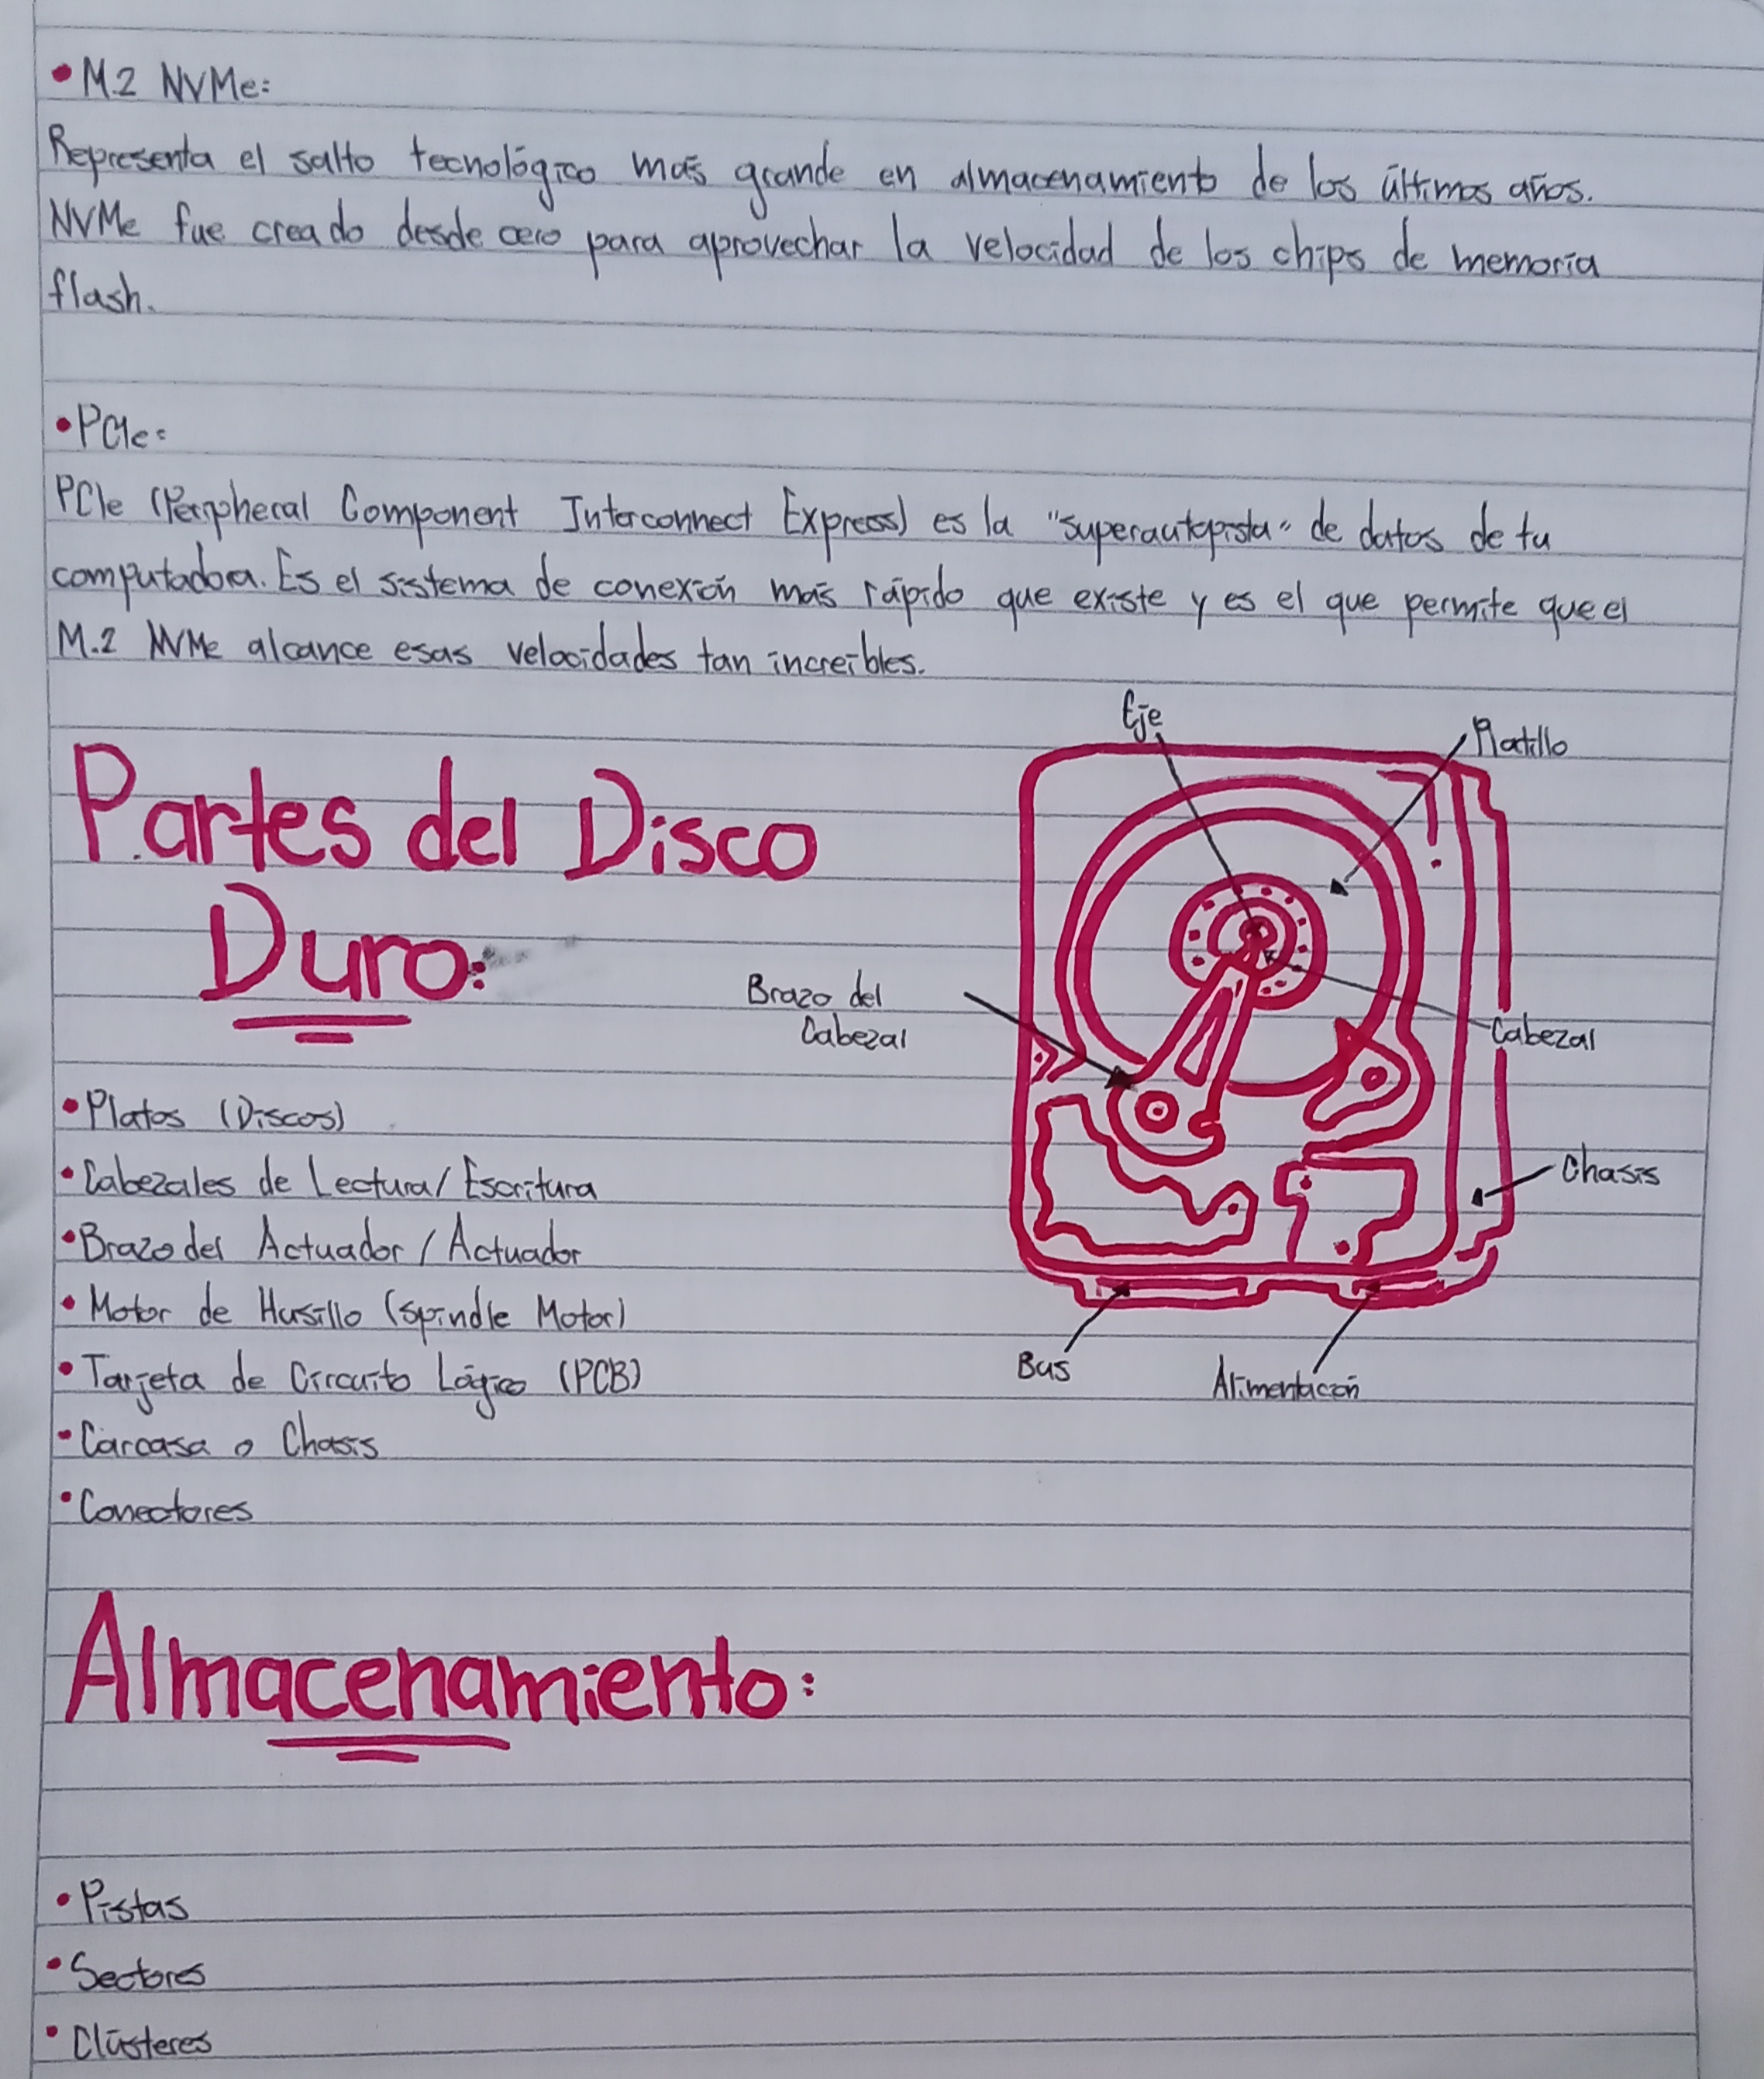 • M.2 NVMe:
Representa el salto tecnológico más grande en almacenamiento de los últimos años.
NVMe fue creado desde cero para aprovechar la velocidad de los chips de memoria
flash.
• PCIe:
PCIe (Peripheral Component Interconnect Express) es la "superautopista" de datos de tu
computadora. Es el sistema de conexión más rápido que existe y es el que permite que el
M.2 NVMe alcance esas velocidades tan increíbles.
Partes del Disco
Duro:
Eje
Platillo
Brazo del
Cabezal
Cabezal
Chasis
Bus
Alimentación
• Platos (Discos)
• Cabezales de Lectura/Escritura
• Brazo del Actuador/Actuador
• Motor de Husillo (Spindle Motor)
• Tarjeta de Circuito Lógico (PCB)
• Carcasa o Chasis
• Conectores
Almacenamiento:
• Pistas
• Sectores
• Clústeres